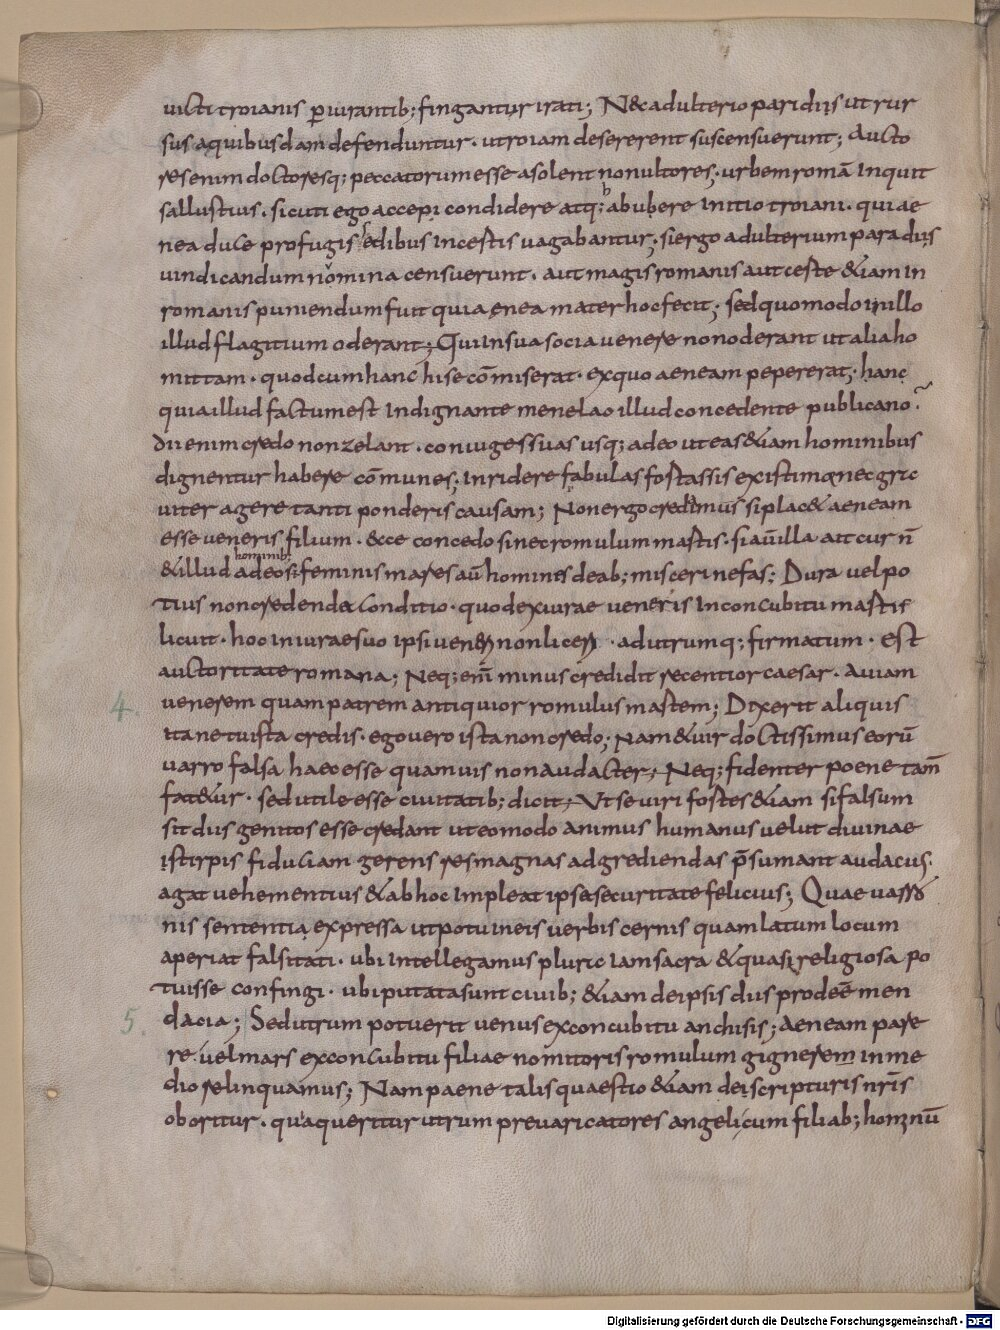 uicti troianis ꝑiurantib; fingantur irati; N& adulterio paridiis ut rur
sus aquibusdam defenduntur. utroiam desererent suscensuerunt; Aucto
res enim doctoresq; peccatorum esse asolent nonultores; urbem romā inquit
sallustius. sicuti ego accepi condidere atq; abubere initio troiani. qui ae
nea duce profugis sedibus incertis uagabantur; si ergo adulterium paradiis
uindicandum nomina censuerunt. aut magis romanis aut certe &iam in
romanis puniendum fuit quia enea mater hoc fecit; sed quomodo inillo
illud flagitium oderant; Qui insua socia uenere nonoderant ut alia ho
mittam. quod cum hanc hise cōmiserat. exquo aeneam pepererat; hanc
quia illud factum est indignante menelao illud concedente publicano.
dii enim credo non zelant. coniuges suas usq; adeo ut eas &iam hominibus
dignentur habere cōmunes; inridere fabulas fortassis existimor nec gra
uiter agere tanti ponderis causam; Non ergo credimus si plac& aeneam
esse ueneris filium. &cce concedo si nec romulum martis. si aū illa aut cur n̄
hominib;
&illud adeos; feminis mares aū homines deab; misceri nefas; Dura uel po
tius non credenda conditio. quod ex iurae ueneris inconcubitu martis
licuit. hoc iniurae suo ipsi ueneri non licere. adutrumq; firmatum. est
auctoritate romana; Neq; enī minus credidit recentior caesar. Auiam
4. uenerem quam patrem antiquior romulus martem; Dixerit aliquis
itane tu ista credis. ego uero ista non credo; Nam & uir doctissimus eorū
uarro falsa haec esse quamuis non audacter; Neq; fidenter poene tam̄
fat&ur. sed utile esse ciuitatib; dicit; Ut se uiri fortes &iam si falsum
sit diis genitos esse credant ut eo modo animus humanus uelut diuinae
istirpis fiduciam gerens res magnas adgrediendas p̄sumant audacius.
agat uehementius & ab hoc impleat ipsa securitate felicius; Quae uarro
nis sententia expressa ut potui meis uerbis cernis quam latum locum
aperiat falsitati. ubi intellegamus plura iam sacra & quasi religiosa po
tuisse confingi. ubi putata sunt ciuib; &iam de ipsis diis prodeē men
5. dacia; Sed utrum potuerit uenus ex concubitu anchisis; Aeneam pare
re. uel mars ex concubitu filiae nomitoris romulum gignerem in me
dio relinquamus; Nam paene talis quaestio &iam dei scripturis nr̄is
oboritur. qua queritur utrum preuaricatores angeli cum filiab; hominū
Digitalisierung gefördert durch die Deutsche Forschungsgemeinschaft - DFG